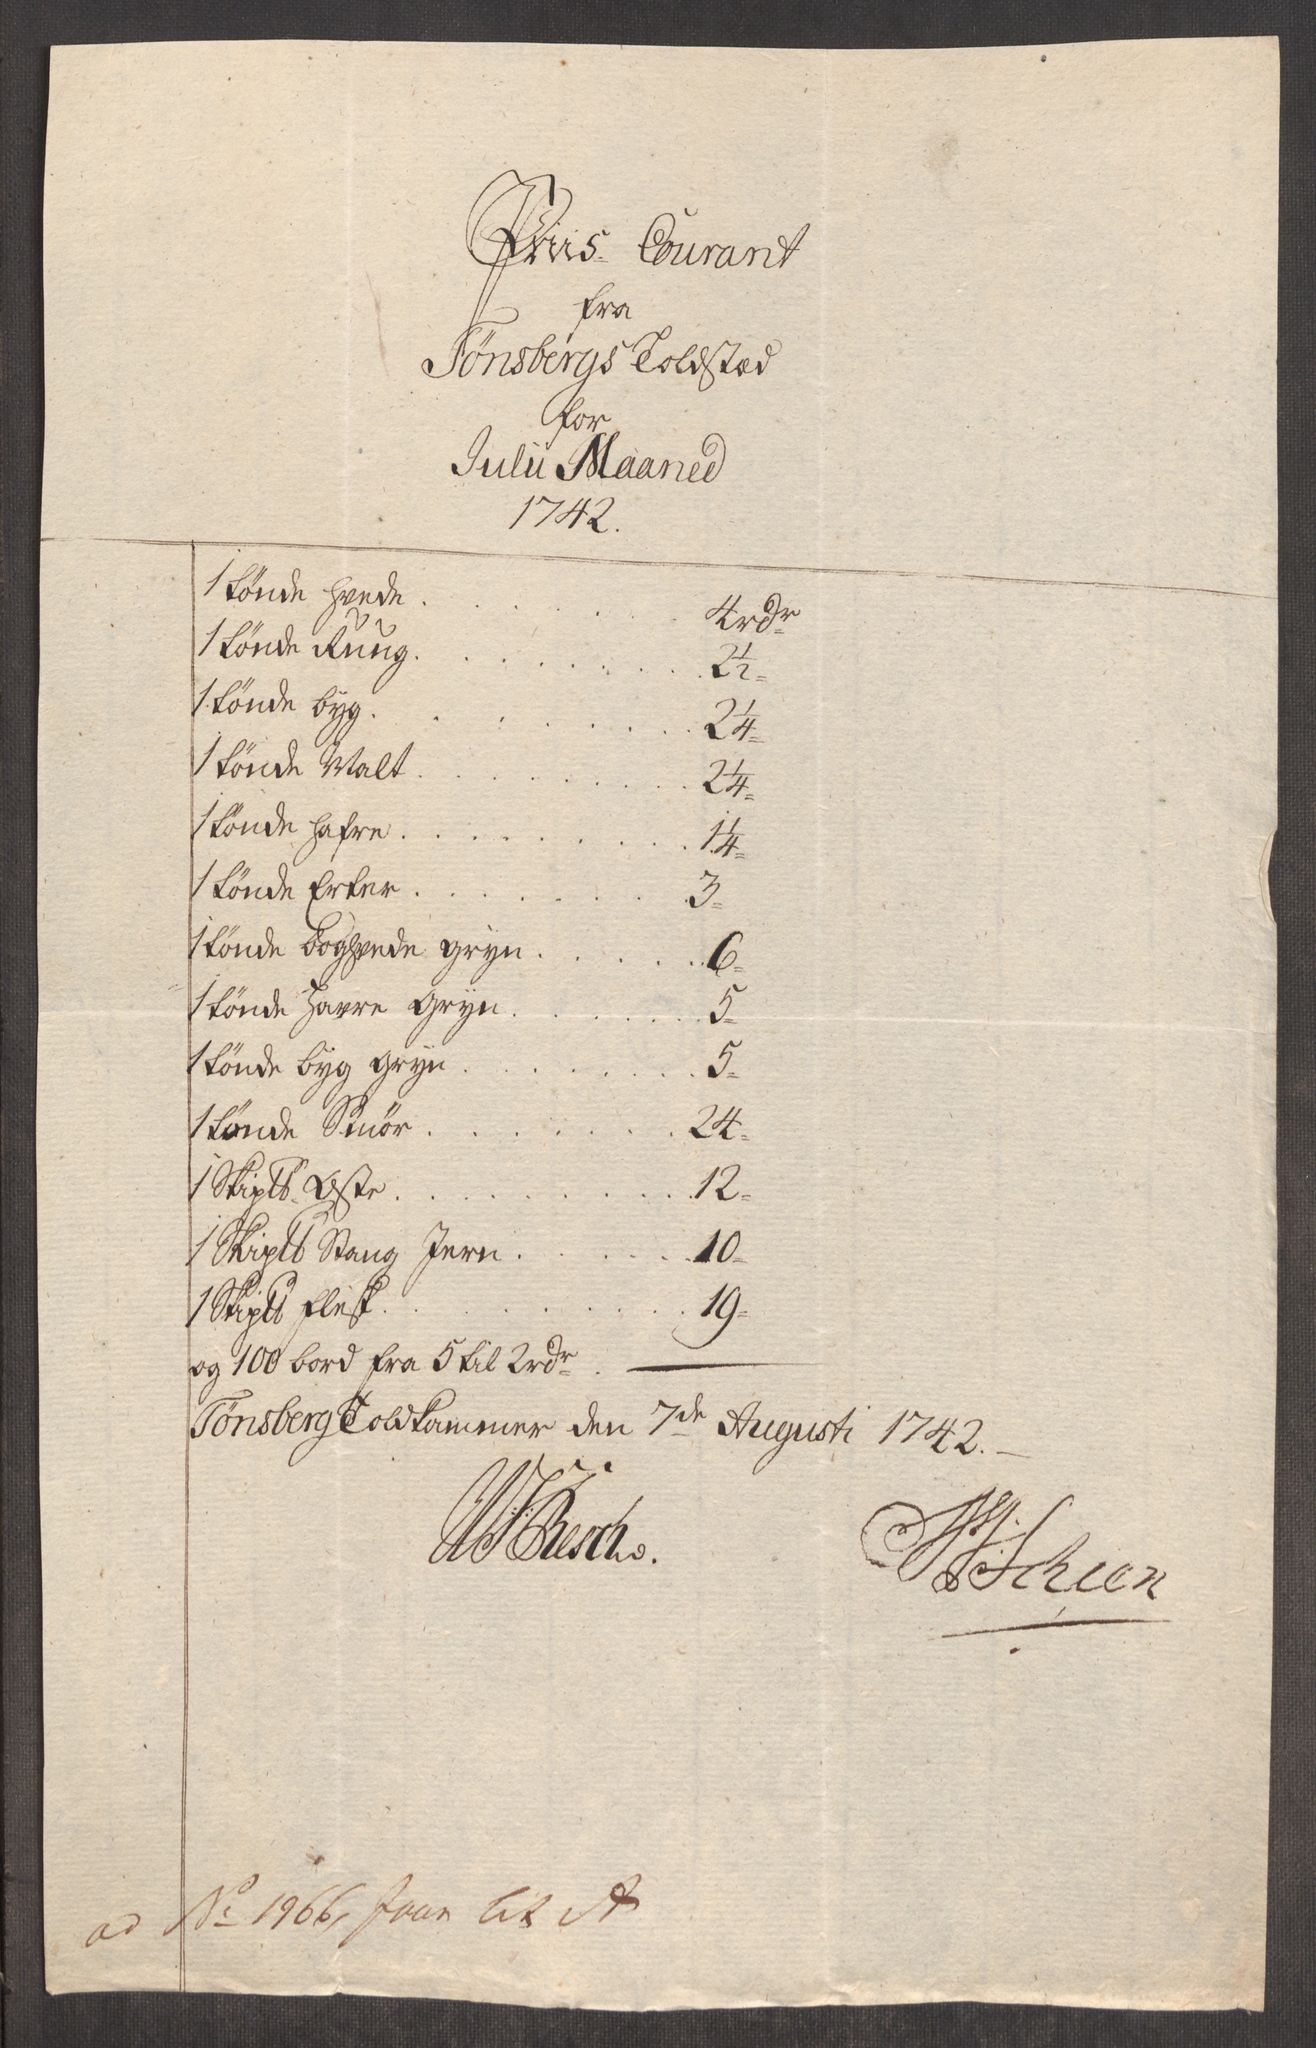 Priis Courant
fra
Tønsbergs Toldsted
for
Julii Maaned
1742.
1 tønde hvede . . . . . 4 rdr
1 tønde Rung . . . . . 2½
1 tønde byg . . . . . 2¼
1 tønde Malt . . . . . 2¼
1 tønde hafre . . . . . 1¼
1 tønde Erter . . . . . 3
1 tønde boghvede gryn . . . . . 6
1 tønde Havre Gryn . . . . . 5
1 tønde byg gryn . . . . . 5
1 tønde Smør . . . . . 24
1 Skip℔ Oste . . . . . 12
1 Skip℔ Stang Jern . . . . . 10
1 Skip℔ flesk . . . . . 19
og 100 bord fra 5 til 2 rdr
Tønsberg Toldkammer den 7de Augusti 1742.
ad No 1966, Lit A